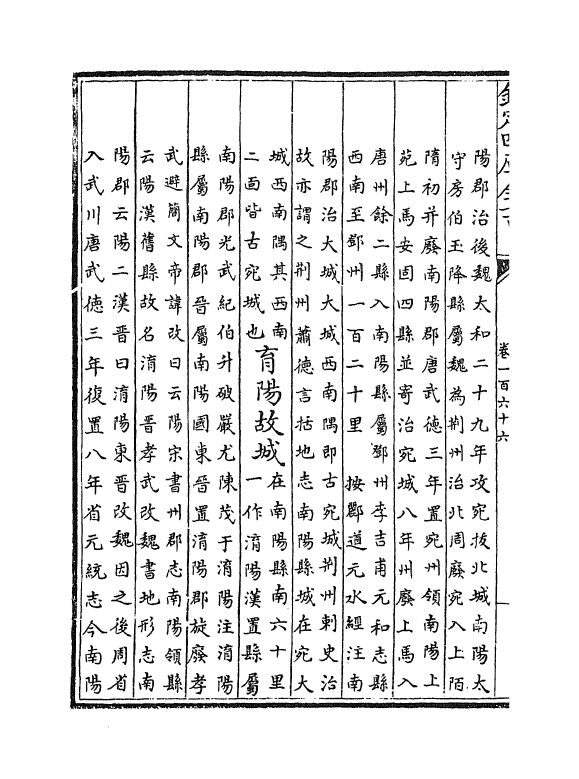 欽定四庫全書
卷一百六十六
陽郡治後魏太和二十九年攻宛拔北城南陽太
守房伯玉降縣屬魏為荆州治北周廢宛入上陌
隋初并廢南陽郡唐武徳三年置宛州領南陽上
苑上馬安固四縣並寄治宛城八年州廢上馬入
唐州餘二縣入南陽縣屬鄧州李吉甫元和志縣
西南至鄧州一百二十里 按酈道元水經注南
陽郡治大城大城西南隅即古宛城荆州刺史治
故亦謂之荆州蕭徳言括地志南陽縣城在宛大
城西南隅其西南
二面皆古宛城也
育陽故城
在南陽縣南六十里
一作淯陽漢置縣屬
南陽郡光武紀伯升破嚴尤陳茂于淯陽注淯陽
縣屬南陽郡晉屬南陽國東晉置淯陽郡旋廢孝
武避簡文帝諱改曰云陽宋書州郡志南陽領縣
云陽漢舊縣故名淯陽晉孝武改魏書地形志南
陽郡云陽二漢晉曰淯陽東晉改魏因之後周省
入武川唐武徳三年復置八年省元統志今南陽